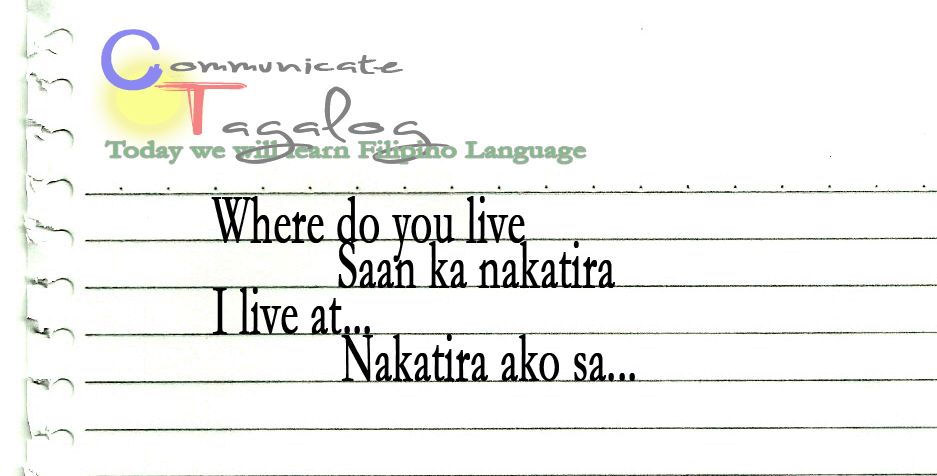 Communicate
Tagalog
Today we will learn Filipino Language
Where do you live
Saan ka nakatira
I live at...
Nakatira ako sa...